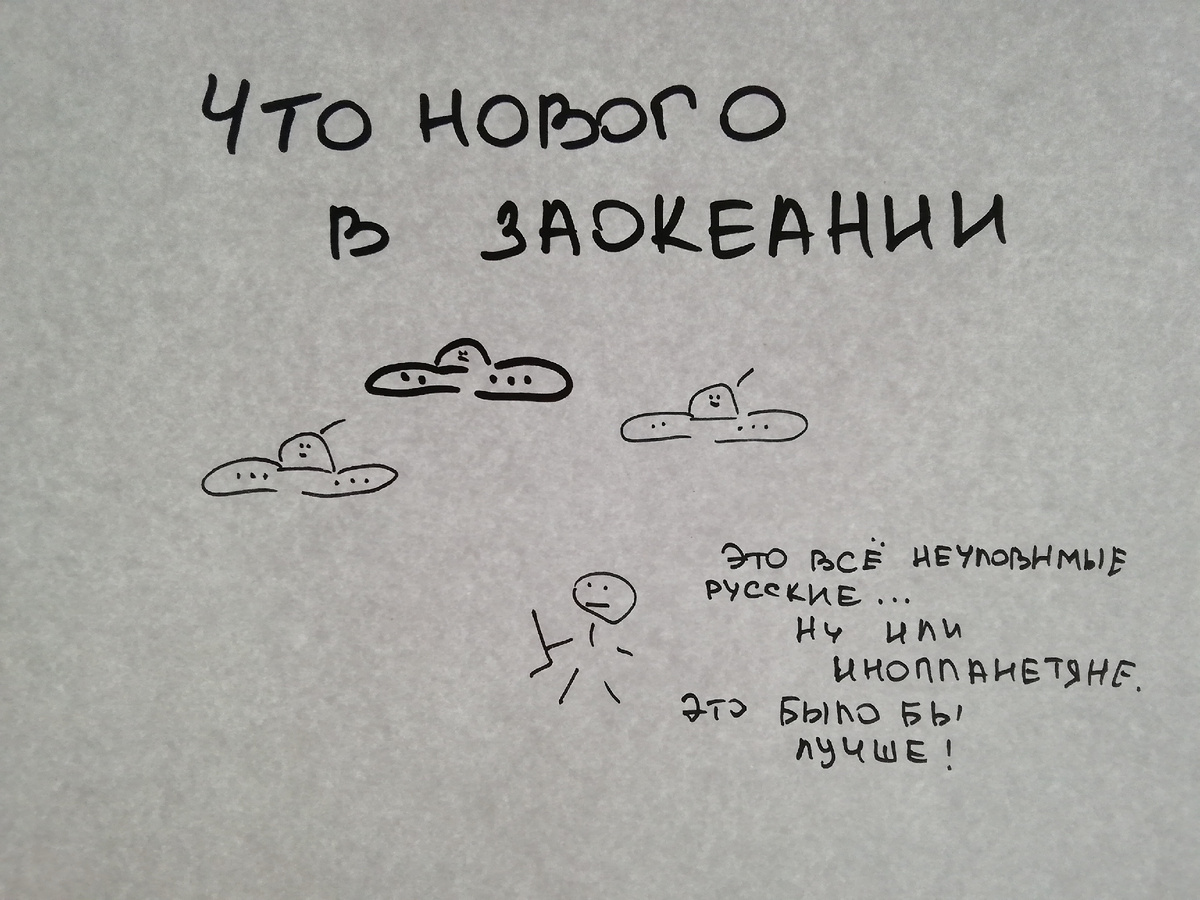 ЧТО НОВОГО
В ЗАОКЕАНИИ
ЭТО ВСЁ НЕУЛОВИМЫЕ
РУССКИЕ...
НУ ИЛИ
ИНОПЛАНЕТЯНЕ.
ЭТО БЫЛО БЫ
ЛУЧШЕ!